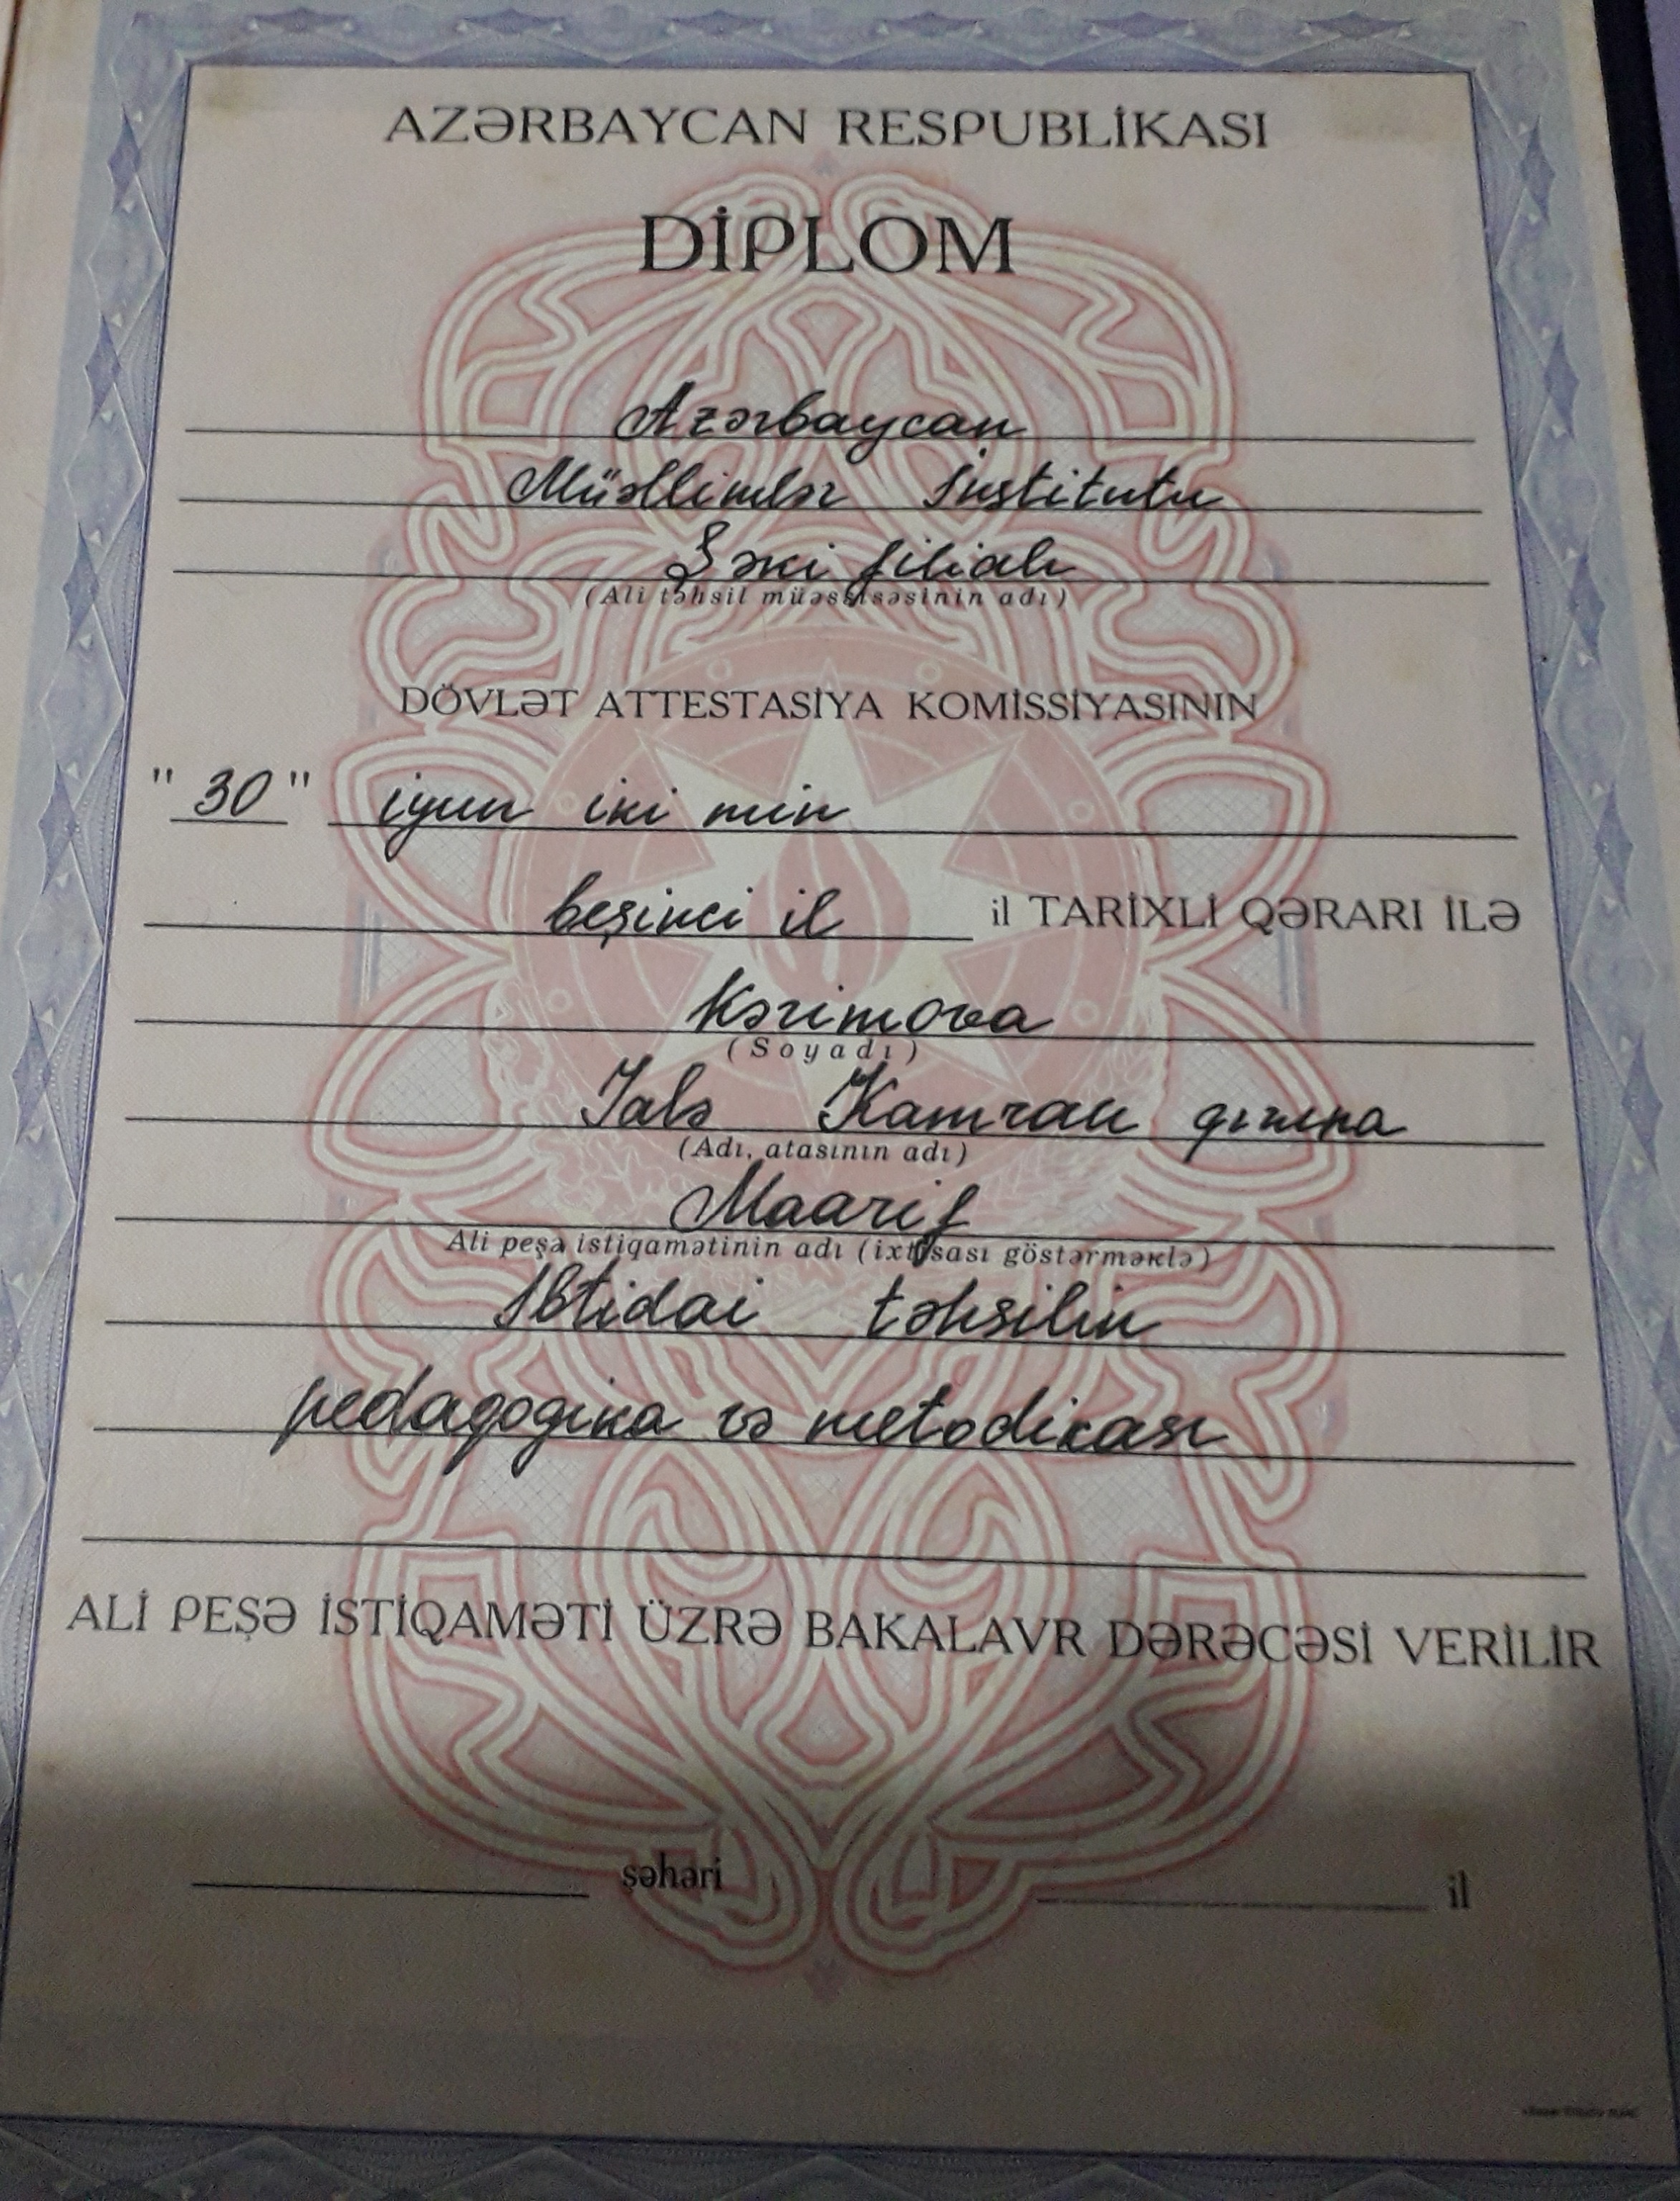 AZƏRBAYCAN RESPUBLİKASI
DİPLOM
Azərbaycan
Müəllimlər İnstitutu
Şəki filialı
(Ali təhsil müəssisəsinin adı)
DÖVLƏT ATTESTASİYA KOMİSSİYASININ
"30" iyun iki min
beşinci il il TARİXLİ QƏRARI İLƏ
Kərimova
(Soyadı)
Jalə Kamran qızına
(Adı, atasının adı)
Maarif
Ali peşə istiqamətinin adı (ixtisası göstərməklə)
İbtidai təhsilin
pedagogika və metodikası
ALİ PEŞƏ İSTİQAMƏTİ ÜZRƏ BAKALAVR DƏRƏCƏSİ VERİLİR
şəhəri il